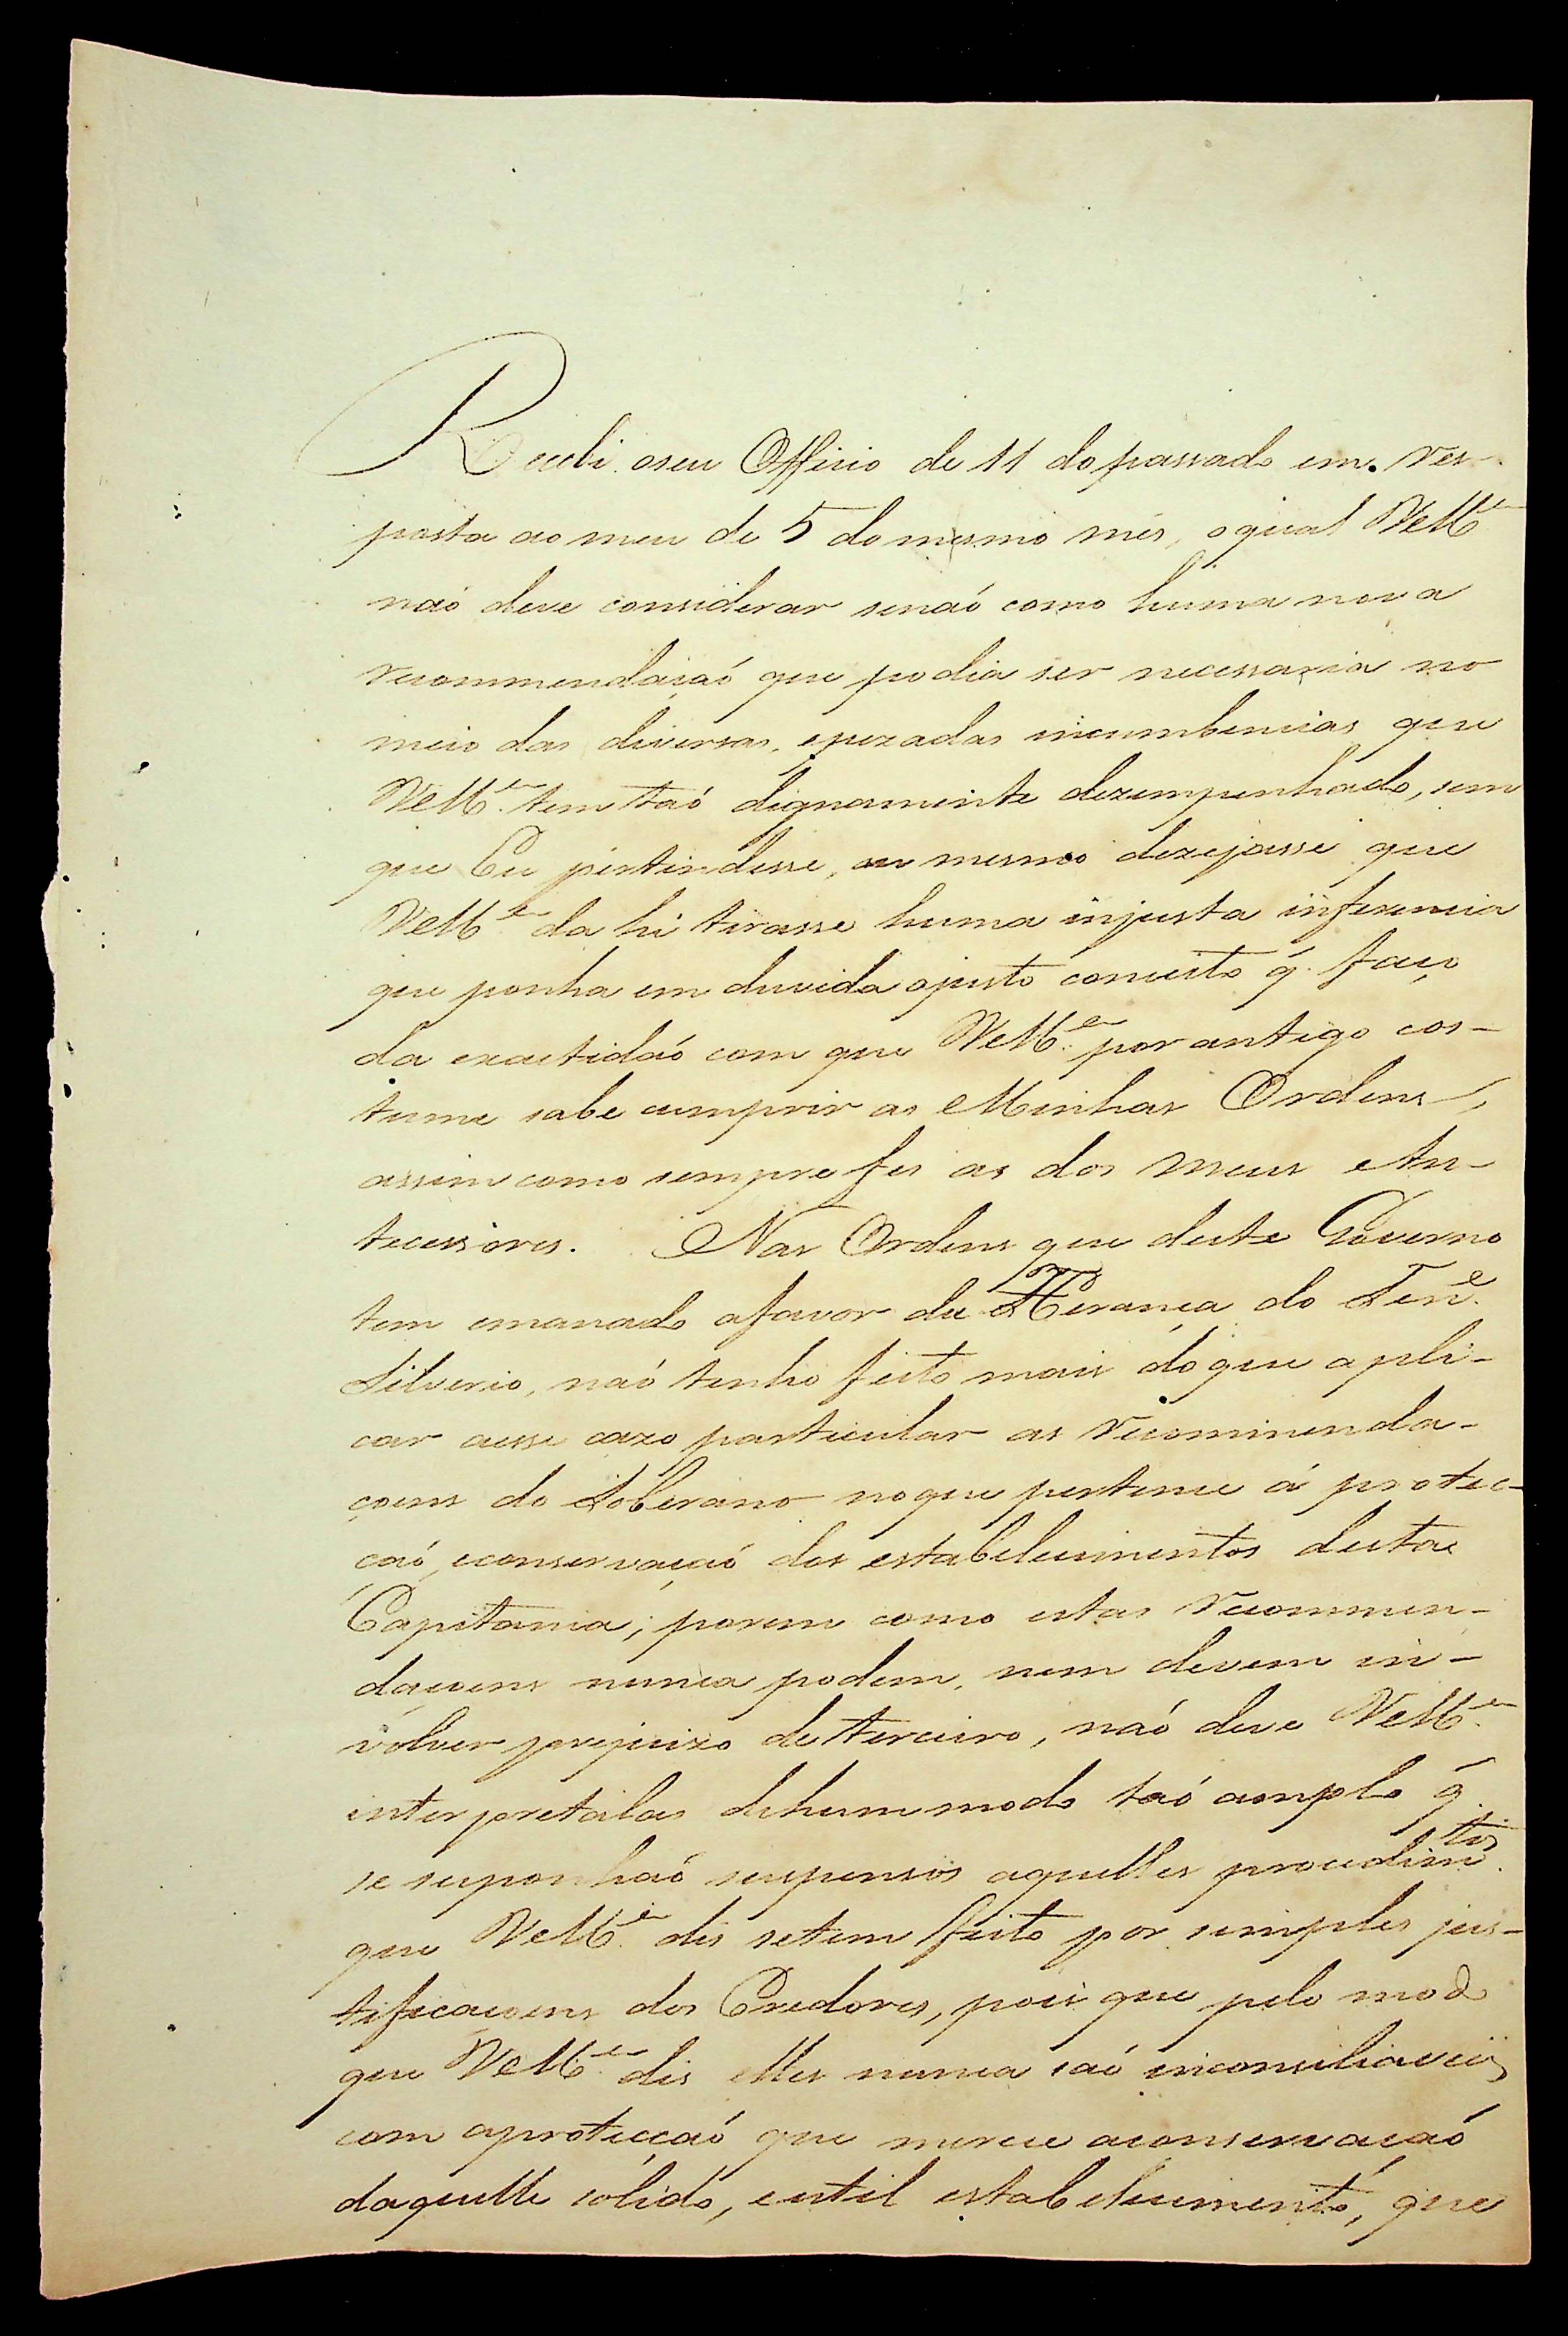 Recebi oseu Officio de 11 do passado em res-
posta ao meu de 5 do mesmo mês, o qual VeM.ce
naó deve considerar senaó como huma nova
recommendaçaó que podia ser necessaria no
meio das diversas, epezadas incumbencias que
VeM.ce tem taó dignamente dezempenhado, sem
que Eu pertendesse, ou mesmo dezejasse que
VeM.ce da hi tirasse huma injusta inferencia
que ponha em duvida ojusto conceito q̃. faço
da exactidaó com que VeM.ce por antigo cos-
tume sabe cumprir as Minhas Ordens,
assim como sempre fes as dos meus An-
tecessores. Nas Ordens que deste Governo
tem emanado afavor da Herança do Ten.e
Silverio, naó tenho feito mais doque apli-
car aesse cazo particular as recommenda-
çoens do Soberano noque pertence á protec-
çaó, econservaçaó dos estabelecimentos desta
Capitania; porem como estas recommen-
daçoens nunca podem, nem devem in-
volver prejuizo deterceiro, naó deve VeM.ce
interpretalas dehum modo taó amplo q̃.
se suponhaó suspensos aquelles procedim.tos
que VeM.ce dis setem feito por simples jus-
tificaçoens dos Credores, pois que pelo modo
que VeM.ce dis elles nunca saó inconsiliaveis
com aprotecçaó que merece aconservaçaó
daquelle solido, eutil estabelecimento, que